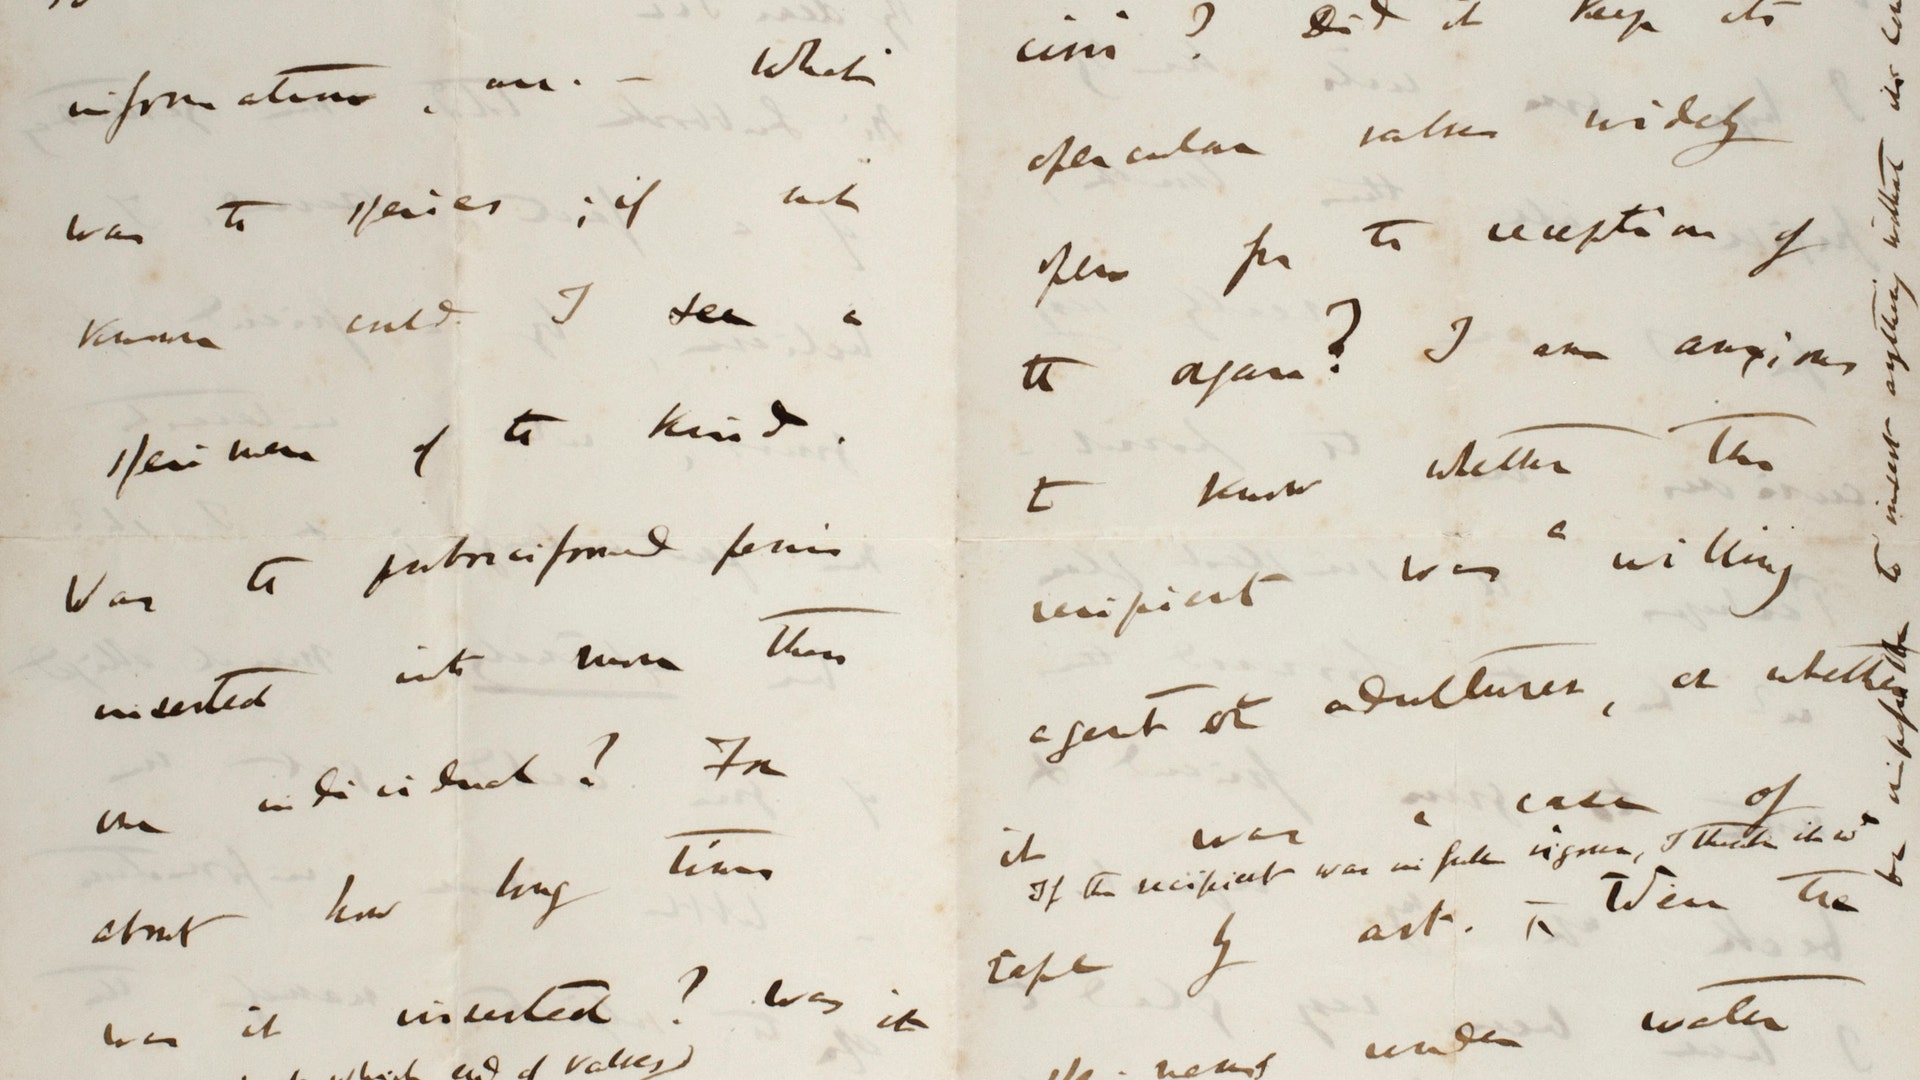 information, on. — What
was the species; if not
known could I see a
specimen of the kind.
Was the probosciformed penis
inserted into more than
one individual? For
about how long time
was it inserted? Was it
which end of valves)
cirri? Did it keep its
opercular valves widely
open for the reception of
the organ? I am anxious
to know whether the
recipient was a willing
agent or adulterer, or whether
it was a case of
If the recipient was in full vigour, I think it wd
rape by art. Were the
under water
be impossible to insert anything without its